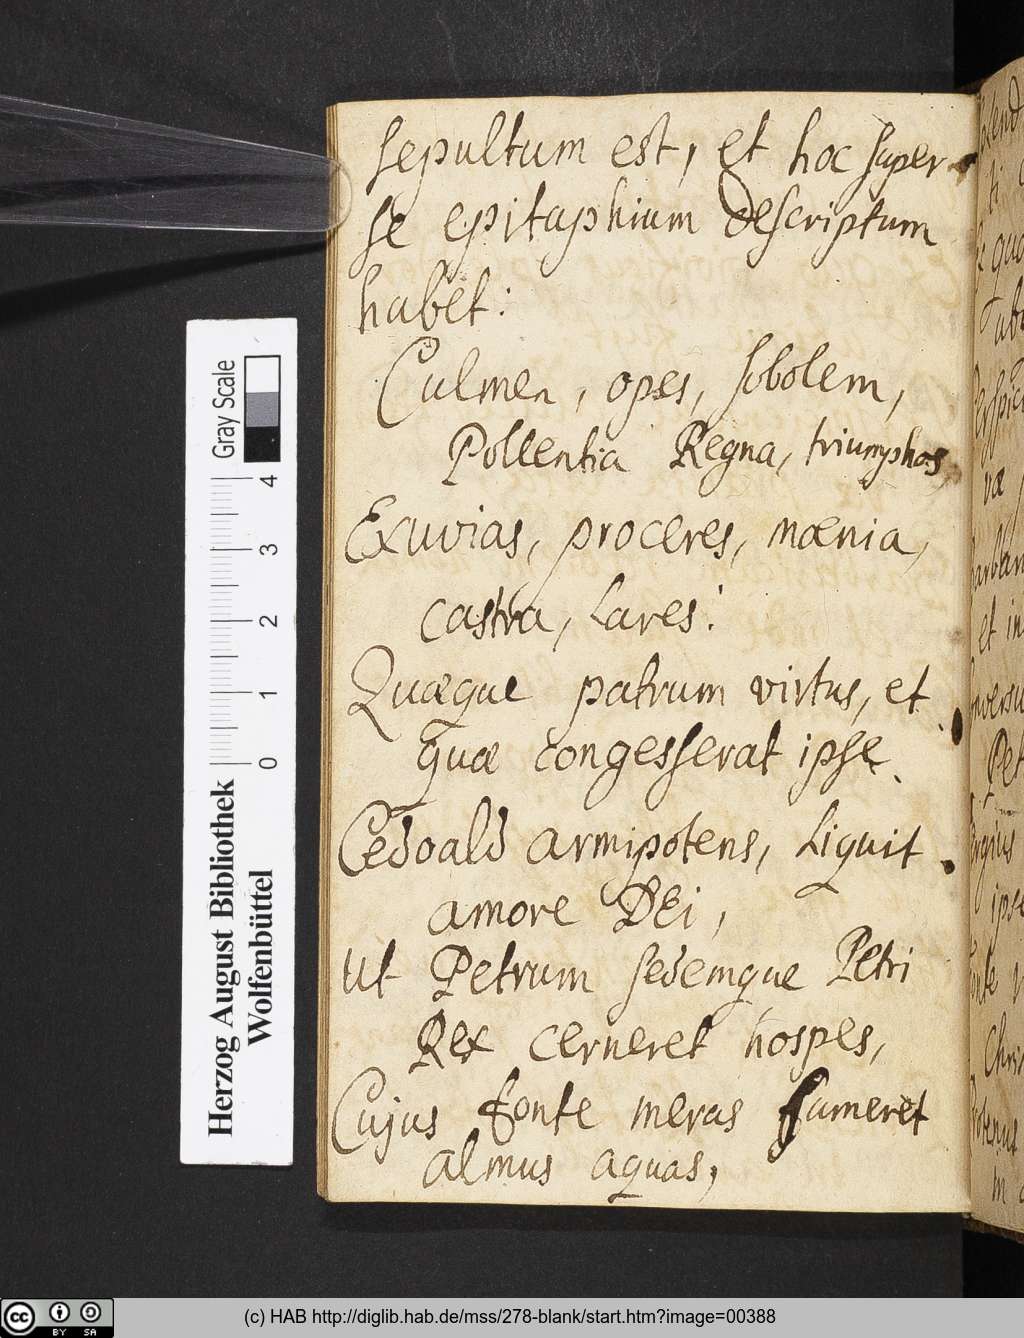 sepultum est, et hoc super
se epitaphium descriptum
habet:
Culmen, opes, sobolem,
Pollentia Regna, triumphos,
Exuvias, proceres, mœnia,
castra, Lares:
Quæque patrum virtus, et
quæ congesserat ipse.
Cedoald armipotens, Liquit
amore Dei,
Ut Petrum sedemque Petri
Rex cerneret hospes,
Cujus fonte meras sumeret
almus aquas,
Gray Scale
4 3 2 1 0
Herzog August Bibliothek
Wolfenbüttel
et in
Pet
cc BY SA
(c) HAB http://diglib.hab.de/mss/278-blank/start.htm?image=00388